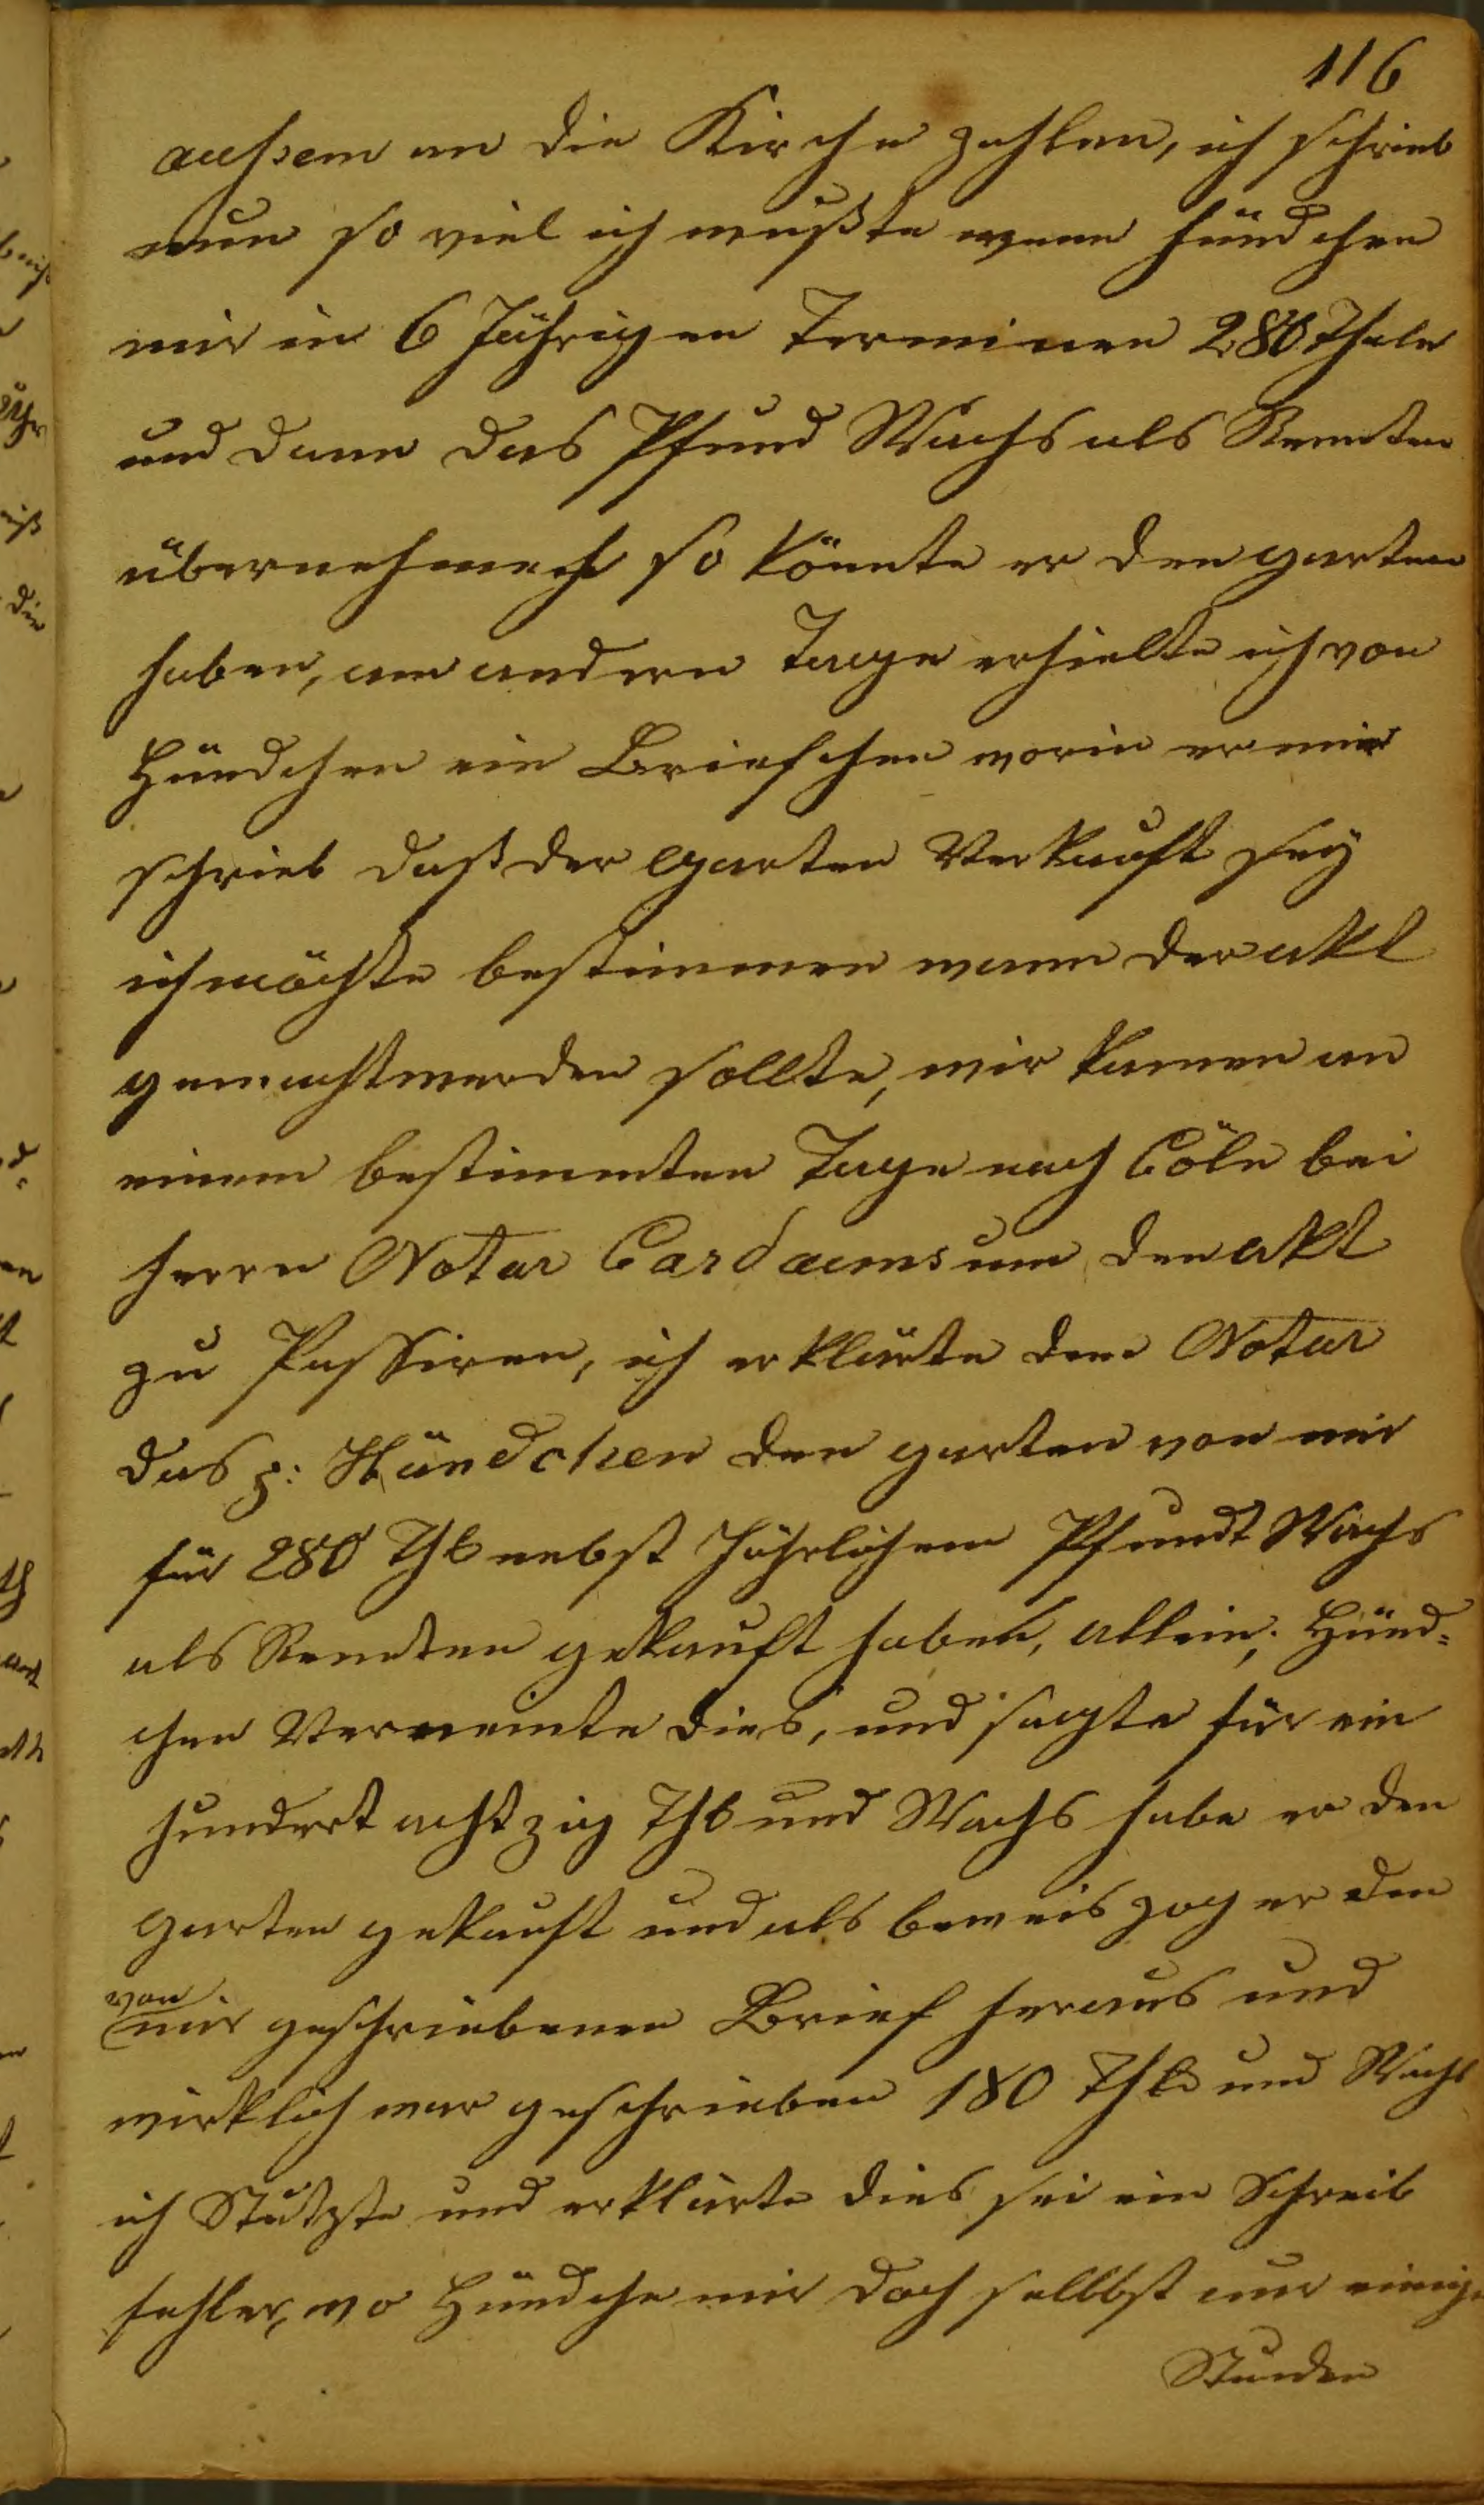 116
aussem an die Kirche zahlen, ich schrieb
nun so viel ich wußte wenn Hündchen
mir in 6 Jährigen Terminen 280 Thaler
und dann das Pfund Wachs als Rennten
übernehmen so könnte er den garten
haben, am andern Tage erhielte ich von
Hündchen ein Briefchen worin er mir
schrieb daß der garten Verkauft sey
ich möchte bestimmen wann der akt
gemacht werden sollte, wir kamen an
einem bestimmten Tage nach Cöln bei
herrn Notar Cardauns um den akt
zu Passiren, ich erklärte dem Notar
das p: Hündchen den garten von mir
für 280 Thlr nebst Jährlichem Pfundt Wachs
als Rennten gekauft haben, allein, Hünd=
chen Verneinte dies, und sagte für ein
hundert achtzig Thlr und Wachs habe er den
garten gekauft und als beweis zog er den
von
mir geschriebenen Brief heraus und
wirklich war geschrieben 180 Thlr und Wachs
ich Stutzte und erklärte dies sei ein Schreib
fehler, wo Hündche mir doch sellbst nur einige
Stunden